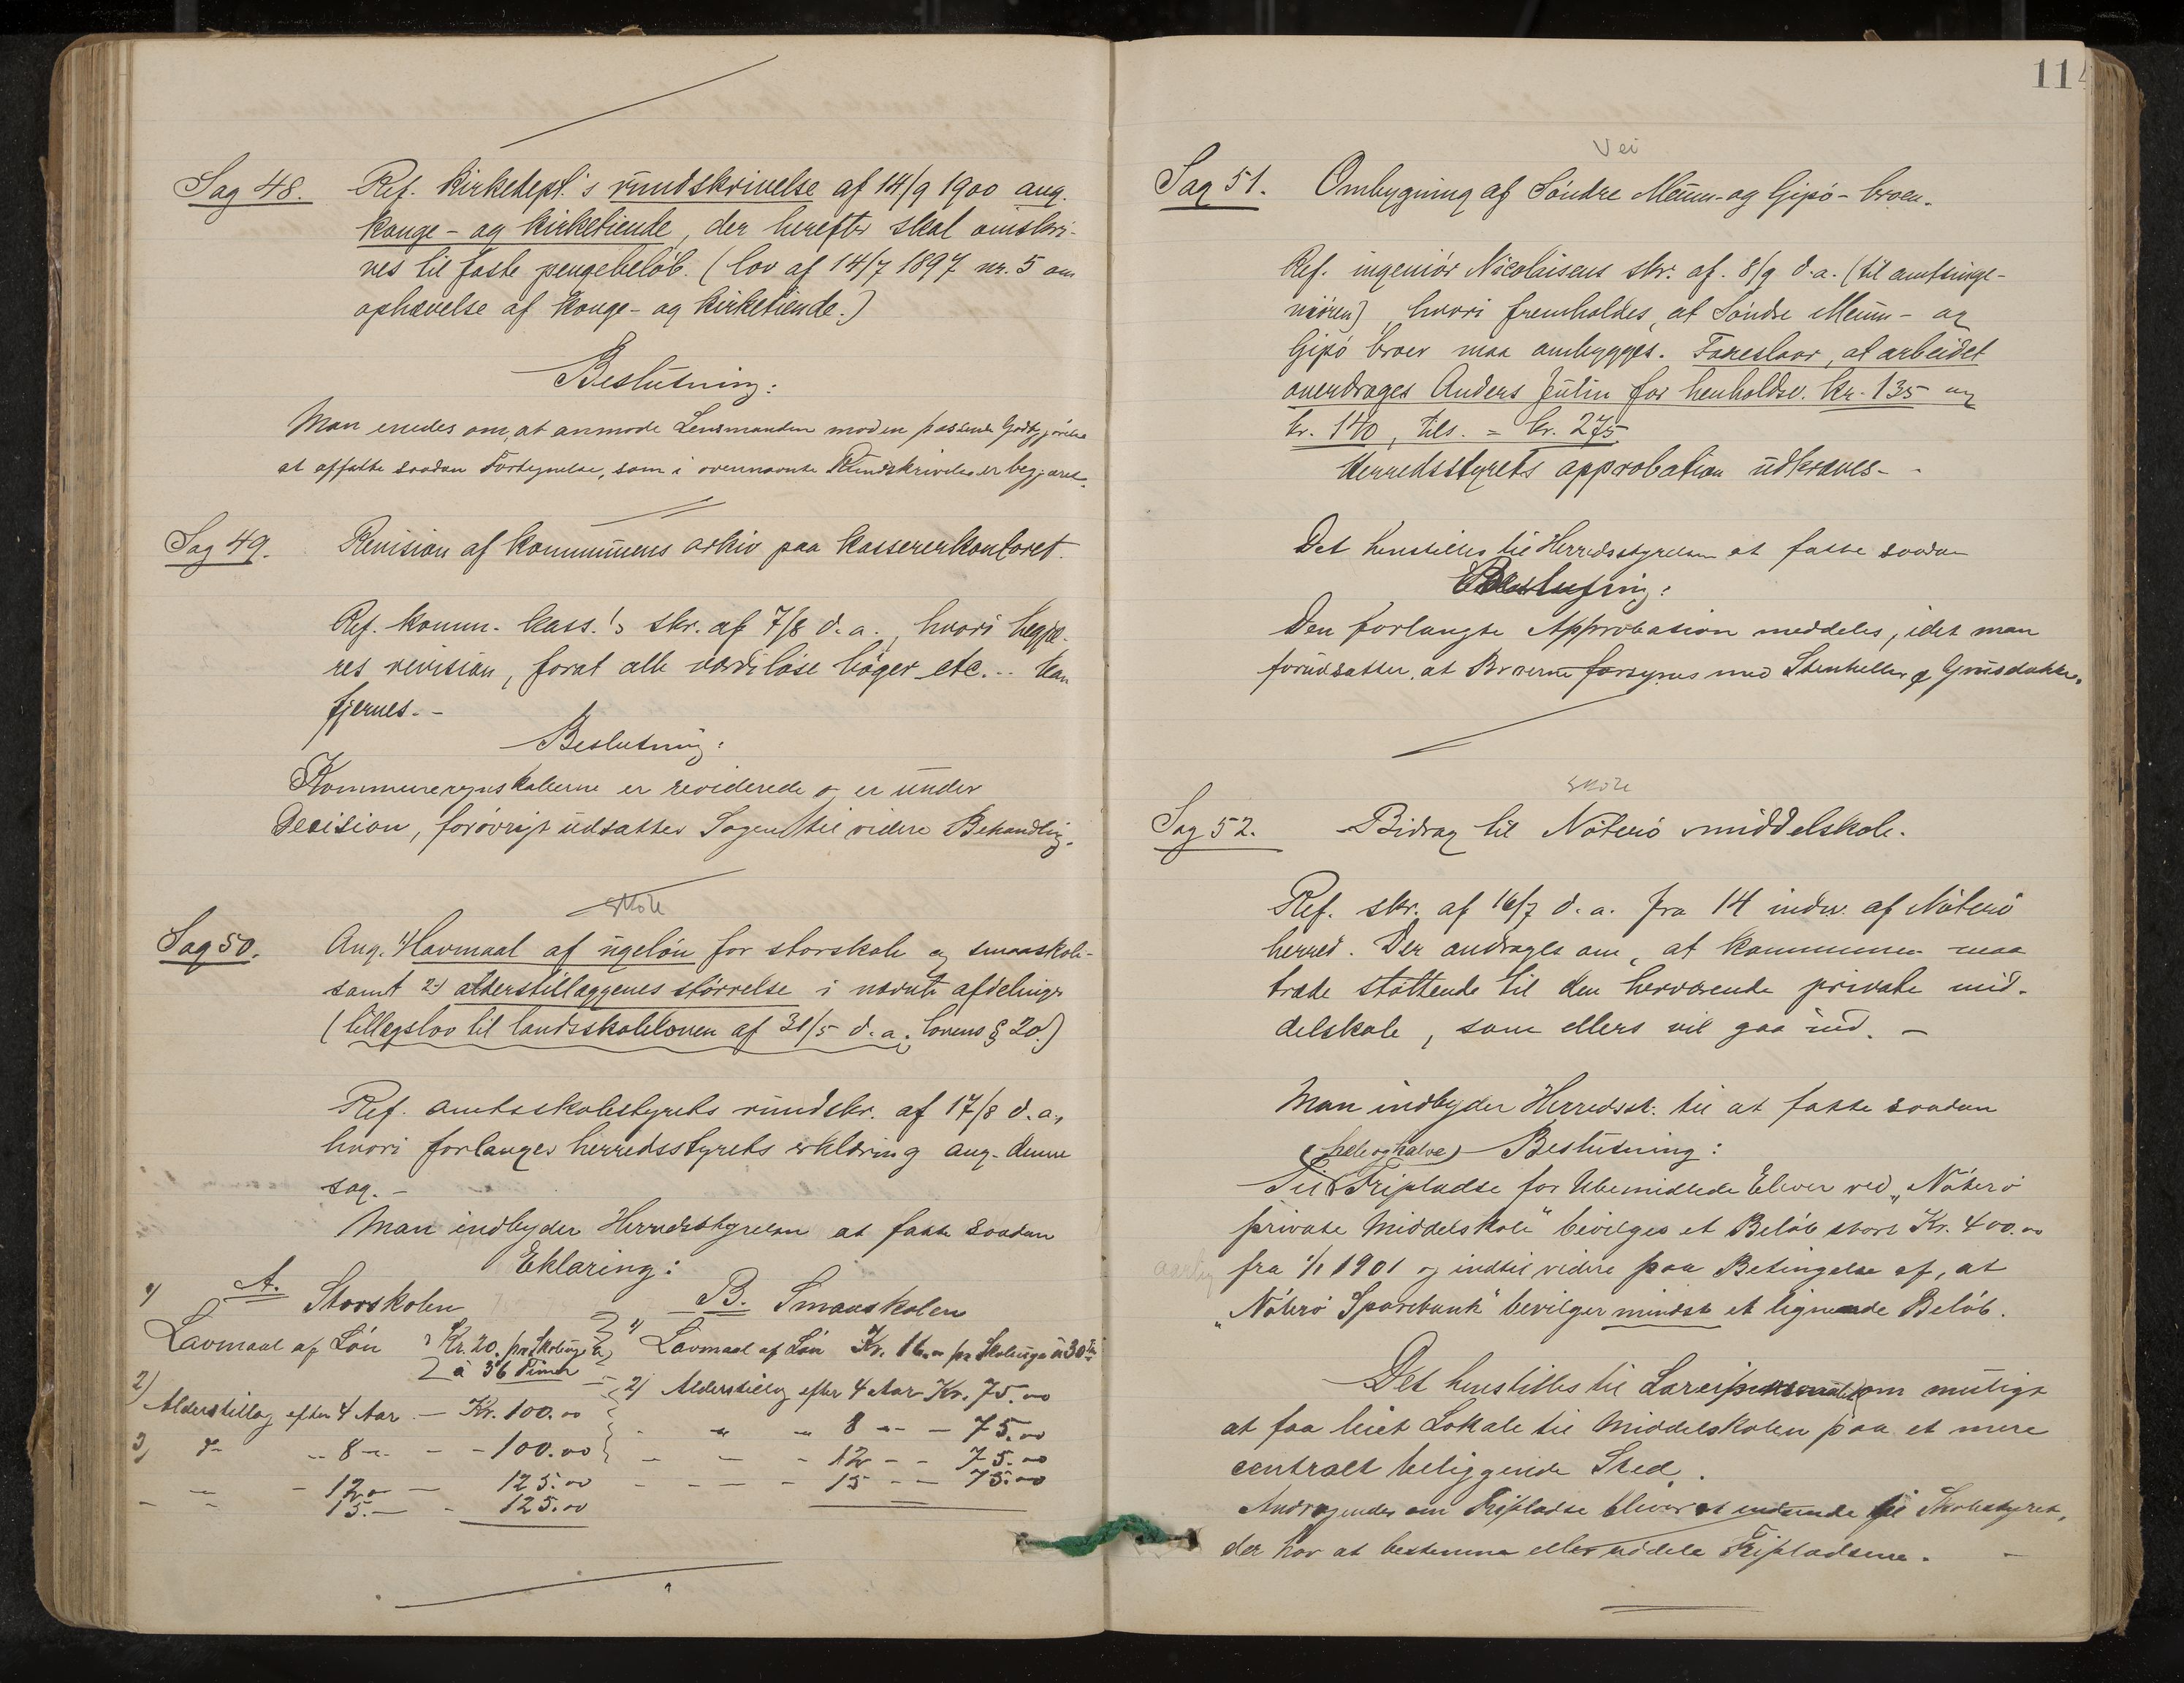 Sag 48. Ref. kirkedept.'s rundskrivelse af 14/9 1900 ang.
konge- og kirketiende, der herefter skal omskri-
ves til faste pengebeløb. (lov af 14/7 1897 nr. 5 om
ophævelse af konge- og kirketiende.)
Beslutning:
Man enedes om, at anmode Lensmanden mod en passende Godtgjørelse
at affatte saadan Fortegnelse, som i ovennævnte Rundskrivelse er begjæret.
Sag 49. Revision af kommunens arkiv paa kassererkontoret.
Ref. komm. kass.'s skr. af 7/8 d. a., hvori begjæ-
res revision, forat alle værdiløse bøger etc... kan
fjernes. -
Beslutning:
Kommuneregnskaberne er reviderede og er under
Decision, forøvrigt udsattes Sagen til videre Behandling.
skole
Sag 50. Ang. 1) Lavmaal af ugeløn for storskole og smaaskole-
samt 2) alderstillæggenes størrelse i nævnte afdelinger
(tillægslov til landsskoleloven af 31/5 d. a., lovens § 20.)
Ref. amtsskolestyrets rundskr. af 17/8 d. a.,
hvori forlanges herredsstyrets erklæring ang. denne
sag. -
Man indbyder Herredsstyrelsen at fatte saadan
Eklæring:
A. Storskolen
1) Lavmaal af Løn Kr. 20. pr. Skoleuge
à 36 Timer
2) Alderstillæg efter 4 Aar - Kr. 100.00
3) do " 8 " - - 100.00
- - - 12 - 125.00
- - 15. - - 125.00
B. Smaaskolen
1) Lavmaal af Løn Kr. 16.00 pr Skoleuge à 30 Tim
2) Alderstillæg efter 4 Aar Kr. 75.00
" " 8 - - 75.00
- - - 12 - - 75.00
- - - - 15 - - 75.00
114
Vei
Sag 51. Ombygning af Søndre Meum- og Gipø-broen.
Ref. ingeniør Nicolaisens skr. af. 8/9 d. a. (til amtsinge-
niøren), hvori fremholdes, at Søndre Meum- og
Gipø broer maa ombygges. Foreslaar, at arbeidet
overdrages Anders Jutin for henholdsv. kr. 135 og
kr. 140, tils. = kr. 275.
Herredsstyrets approbation udkræves. -
Det henstilles til Herredsstyrelsen at fatte saadan
Beslutning:
Den forlangte Approbation meddeles, idet man
forudsætter, at Broerne forsynes med Stenheller & Grusdække.
skole
Sag 52. Bidrag til Nøterø middelskole.
Ref. skr. af 16/7 d. a. fra 14 indv. af Nøterø
herred. Der andrages om, at kommunen maa
træde støttende til den herværende private mid-
delskole, som ellers vil gaa ind. -
Man indbyder Herredsst. til at fatte saadan
Beslutning:
(hele og halve)
Til Fripladse for Ubemidlede Elever ved „Nøterø
private Middelskole" bevilges et Beløb stort Kr. 400.00
aarlig fra 1/1 1901 og indtil videre paa Betingelse af, at
„Nøterø Sparebank" bevilger mindst et lignende Beløb.
Det henstilles til om muligt
at faa leiet Lokale til Middelskolen paa et mere
centralt beliggende Sted.
Andragender om Fripladse bliver at indsende til Skolestyret,
der har at bestemme eller uddele Fripladsene. -